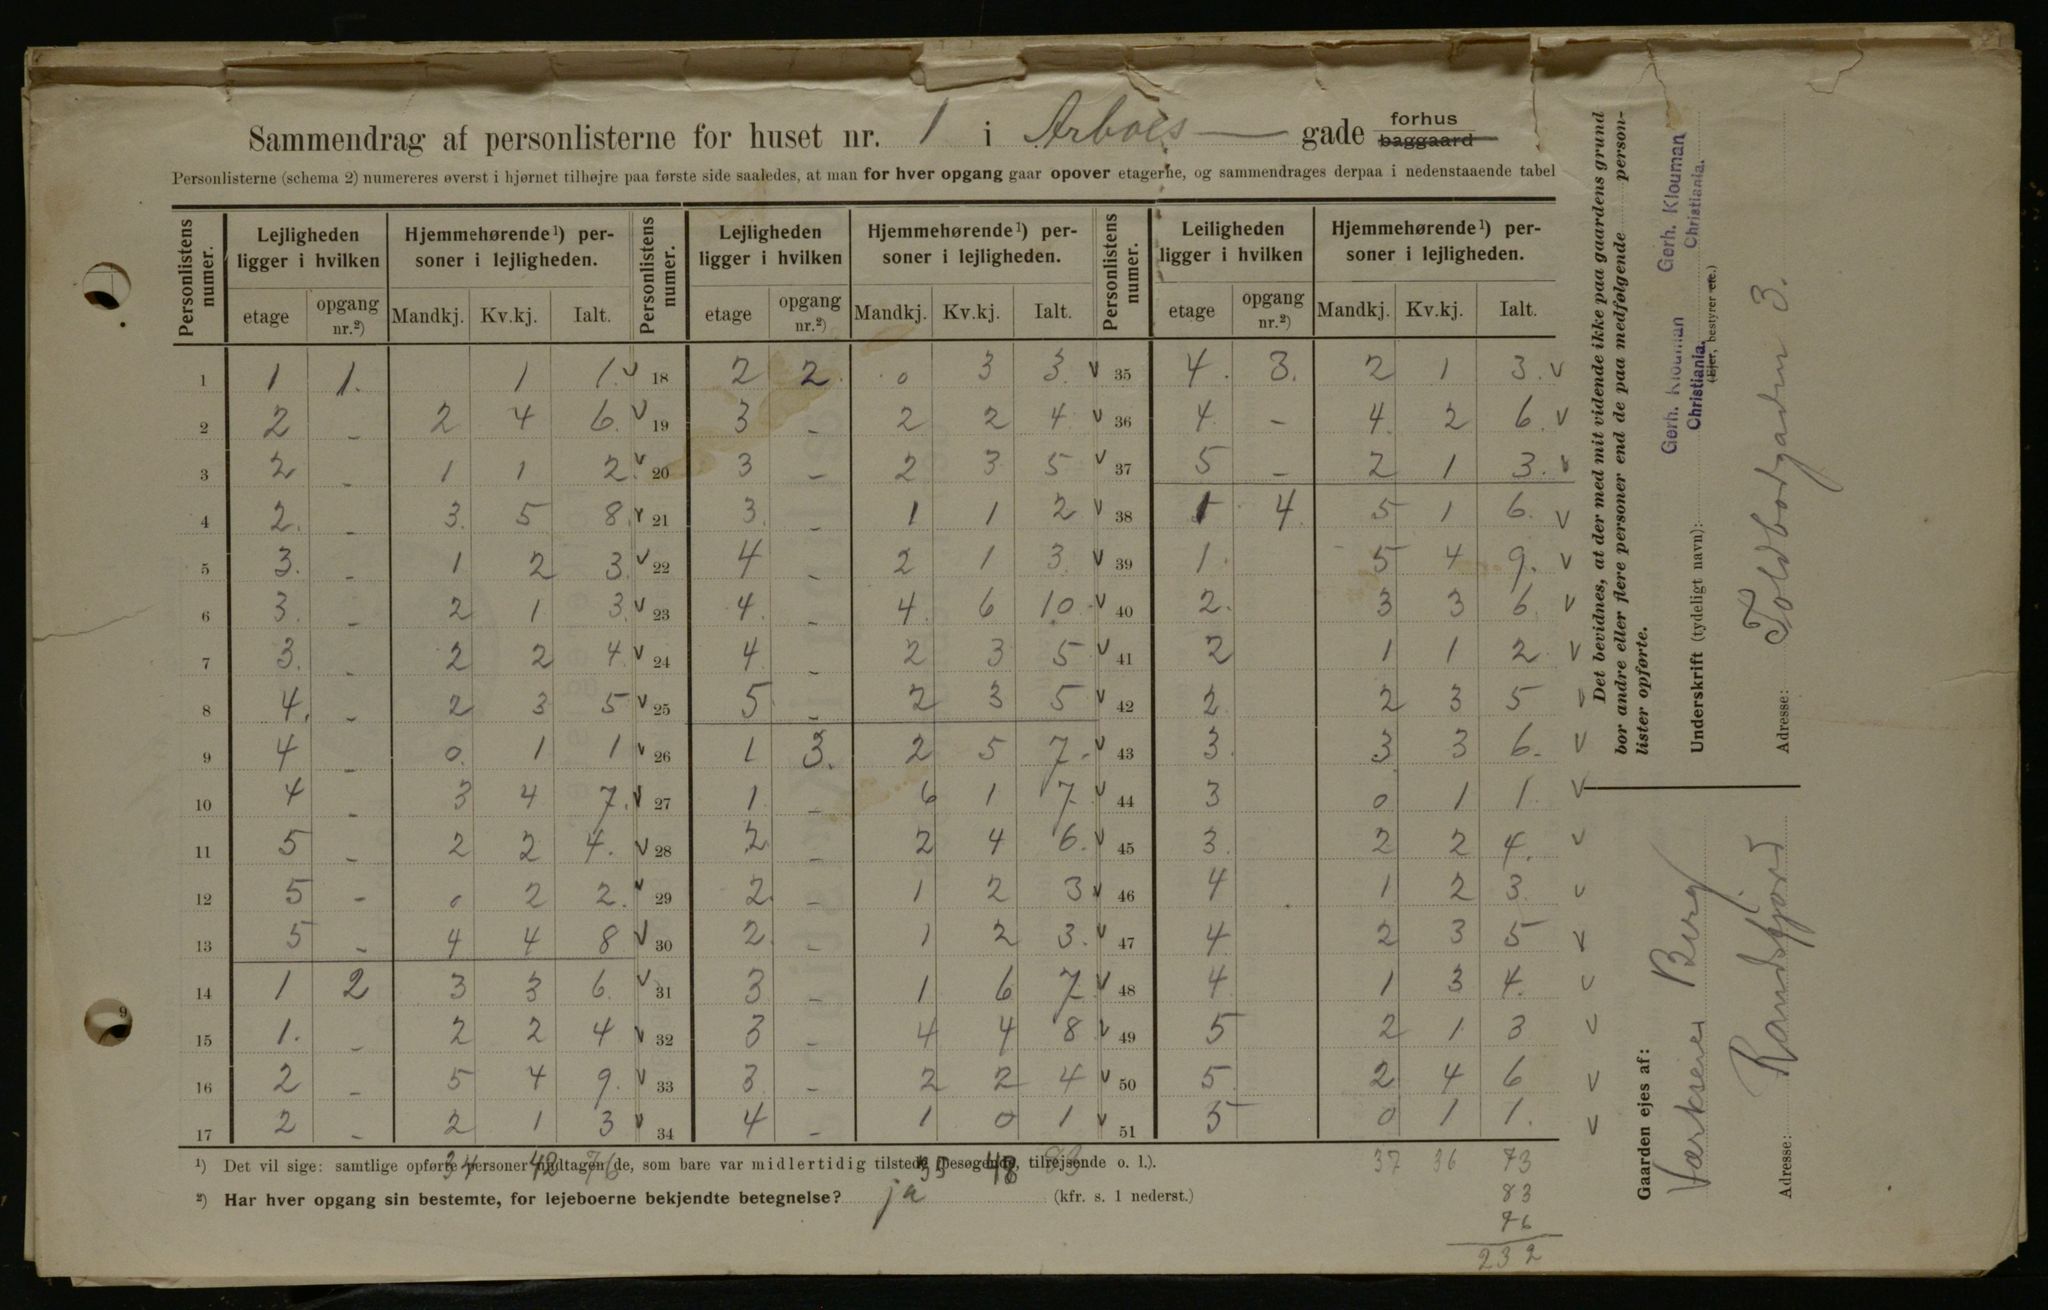 Sammendrag af personlisterne for huset nr. 1 i Arboes gade forhus baggaard
Personlisterne (schema 2) numereres øverst i hjørnet tilhøjre paa første side saaledes, at man for hver opgang gaar opover etagerne, og sammendrages derpaa i nedenstaaende tabel
Personlistens numer. Lejligheden ligger i hvilken Hjemmehørende¹) personer i lejligheden. Personlistens numer. Lejligheden ligger i hvilken Hjemmehørende¹) personer i lejligheden. Personlistens numer. Leiligheden ligger i hvilken Hjemmehørende¹) personer i lejligheden.
etage opgang nr.²) Mandkj. Kv.kj. Ialt. etage opgang nr.²) Mandkj. Kv.kj. Ialt. etage opgang nr.²) Mandkj. Kv.kj. Ialt.
1 1 1. 1 1. v 18 2 2. 0 3 3. v 35 4. 3. 2 1 3. v
2 2 - 2 4 6. v 19 3 - 2 2 4 v 36 4. - 4. 2 6. v
3 2 - 1 1 2. v 20 3 - 2 3 5 v 37 5 - 2 1 3. v
4 2. - 3. 5 8. v 21 3. - 1 1 2 v 38 1 4. 5 1 6. v
5 3. - 1 2 3. v 22 4 - 2 1 3. v 39 1. 5 4 9. v
6 3. - 2 1 3. v 23 4. - 4. 6 10. v 40 2. 3 3 6. v
7 3. - 2 2 4. v 24 4. - 2 3 5 v 41 2 1 1 2. v
8 4. - 2 3 5 v 25 5. - 2 3 5 v 42 2. 2 3 5 v
9 4 - 0. 1 1 v 26 1 3. 2 5 7. v 43 3. 3 3 6. v
10 4 - 3 4 7. v 27 1. - 6 1 7. v 44 3 0 1 1. v
11 5 - 2 2 4. v 28 2. - 2 4 6. v 45 3. 2 2 4. v
12 5 - 0 2 2. v 29 2. - 1 2 3 v 46 4 1 2 3. v
13 5 - 4 4 8 v 30 2. - 1 2 3. v 47 4. 2 3 5 v
14 1 2 3 3 6. v 31 3. - 1 6 7. v 48 4. 1 3 4. v
15 1. - 2 2 4 v 32 3 - 4 4 8 v 49 5 2 1 3 v
16 2 - 5 4 9. v 33 3. - 2 2 4 v 50 5. 2 4 6 v
17 2 - 2 1 3 v 34 4 - 1 0 1 v 51 5 0 1 1. v
¹) Det vil sige: samtlige opførte personer undtagen de, som bare var midlertidig tilstede (besøgende, tilrejsende o. l.).
34 42 76 35 48 83 37 36 73
83
²) Har hver opgang sin bestemte, for lejeboerne bekjendte betegnelse? ja (kfr. s. 1 nederst.)
76
232
Det bevidnes, at der med mit vidende ikke paa gaardens grund
bor andre eller flere personer end de paa medfølgende personlister opførte.
Gerh. Klouman Gerh. Klouman
Christiania. Christiania.
Underskrift (tydeligt navn):
(Ejer, bestyrer etc.)
Adresse: Toldbodgaden 3.
Gaarden ejes af:
Berg
Adresse: Randsfjord
9